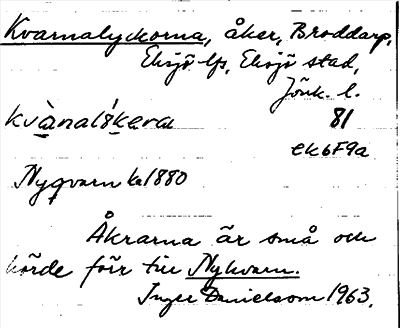 Kvarnalyckorna, åker, Broddarp,
Eksjö lfs, Eksjö stad,
Jönk. l.
81
ek6F9a
Nyqvarn ka 1880
Åkrarna är små och
hörde förr till Nykvarn.
Inger Danielsson 1963.